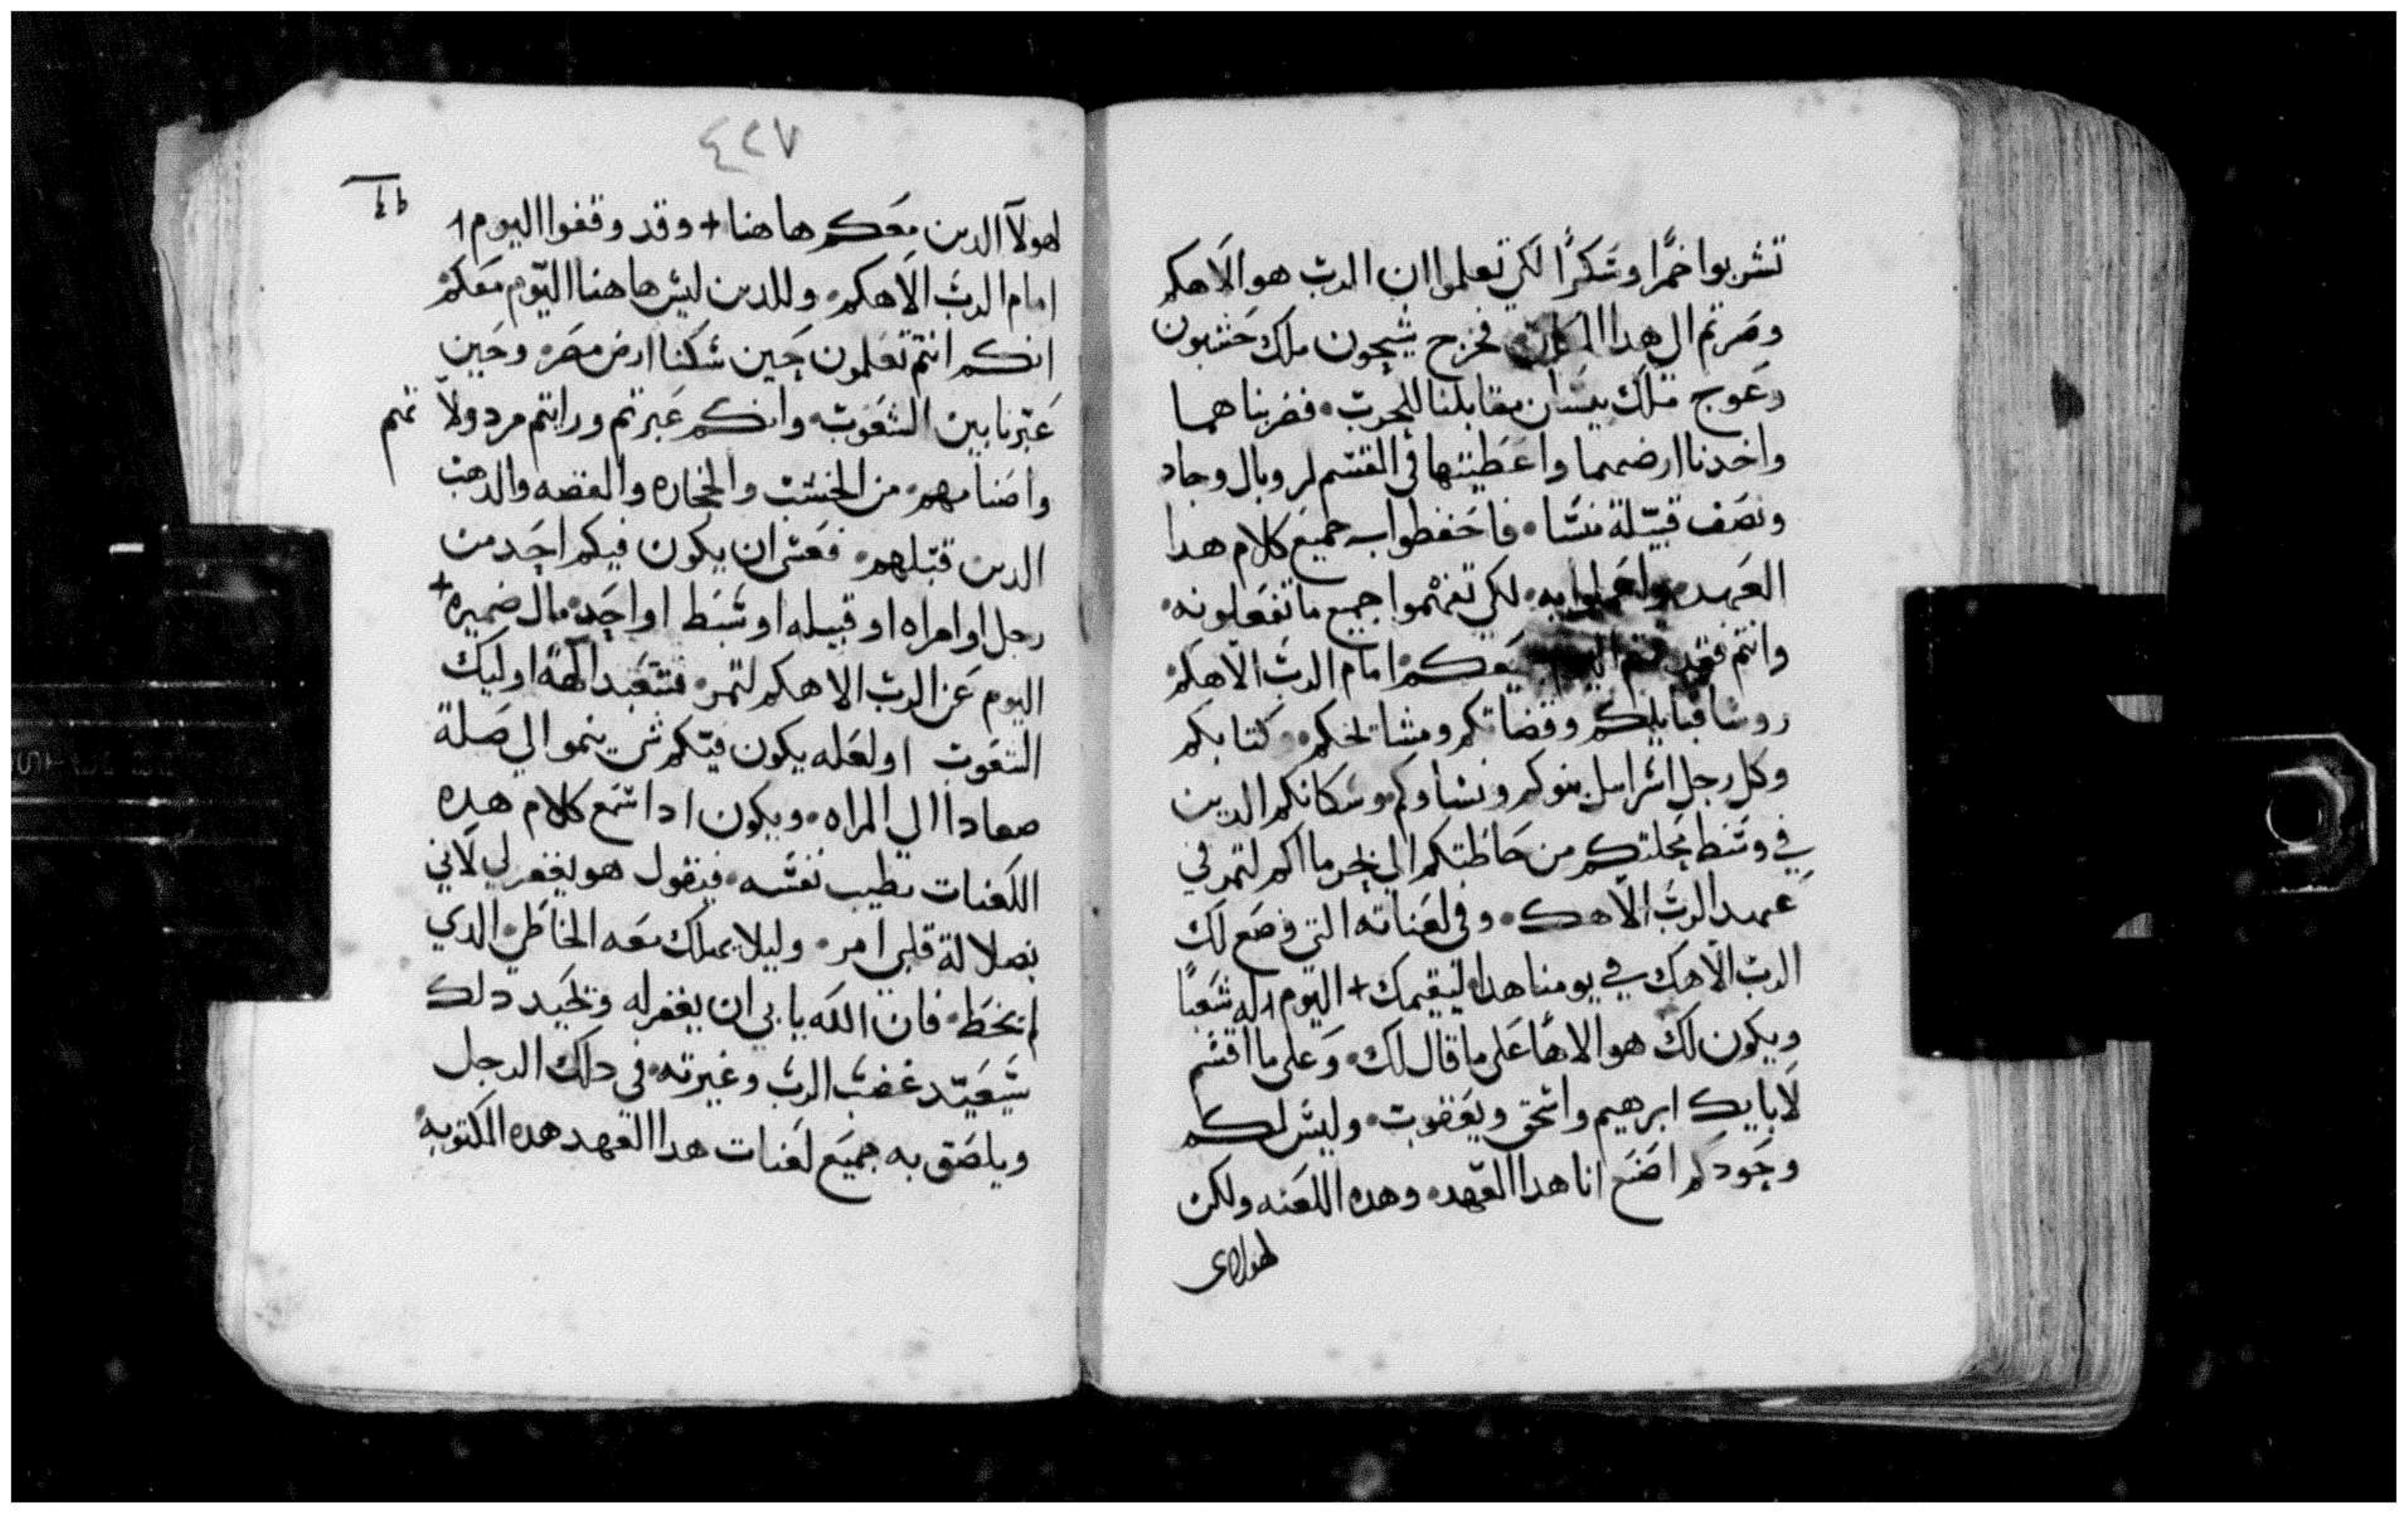 تشربوا خمرًا وسكرًا لكي تعلموا ان الرب هو الاهكم
وصرتم الى هدا المكان فخرج شيحون ملك حشبون
وعوج ملك بيسان مقابلنا للحرب فضربناهما
واخدنا ارضهما واعطيتها في القسم لروبال وجاد
ونصف قبيلة منسا فاحفطوا جميع كلام هدا
العهد واعملوا به لكي تفهموا جميع ما تفعلونه
وانتم فقد قمتم اليوم امام الرب الاهكم
روسا قبايلكم وقضاتكم ومشايخكم وكتابكم
وكل رجل اسراىيل بنوكم ونساوكم وسكانكم الدين
في وسط محلتكم من حاطبكم الى لتمر في
عهد الرب الاهك وفي لعناته التي وضع لك
الرب الاهك في يومنا هدا ليقيمك + اليوم له شعبًا
ويكون لك هو الاهًا على ما قال لك وعلى ما اقسم
لابايك ابرهيم واسحق ويعقوب وليس لكم
وحودكم اضع انا هدا العهد وهده اللعنه ولكن
لهولاى
٤٢٧
لهولآ الدين معكم هاهنا + وقد وقفوا اليوم
امام الرب الاهكم وللدين ليس هاهنا اليوم معكم
انكم انتم تعلمون حين سكنا ارض مصر وحين
عبرنا بين الشعوب وانكم عبرتم ورايتم مردولاتهم
واصنامهم من الخشب والحجاره والفضه والدهب
الدين قبلهم فعسى ان يكون فيكم احد من
رجل او امراه او قبيله او سبط او احد مال ضميره +
اليوم عن الرب الاهكم لتمر فتتعبد الهة اوليك
الشعوب او لعله يكون فيكم ينموا الى
الى المراه ويكون ادا سمع كلام هده
اللعنات يطيب نفسه فيقول هو يغفر لي لاني
بضلالة قلبي امر وليلا يهلك معه الخاطي الدي
لم يخط فان الله يابي ان يغفر له وتحيد دلك
شيعيد غضب الرب وغيرته في دلك الرجل
ويلصق به جميع لعنات هدا العهد هده المكتوبه